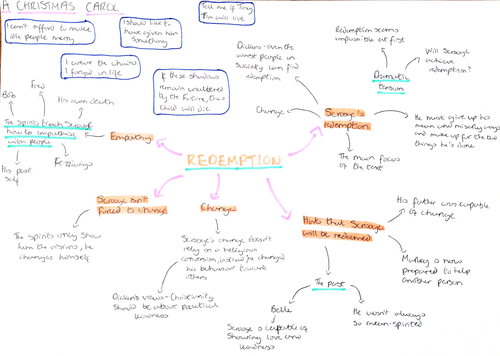 A CHRISTMAS CAROL
I can't afford to make
idle people merry
I should like to
have given him
something
Tell me if Tiny
Tim will live
I wear the chain
I forged in life
If these shadows
remain unaltered
by the Future, the
child will die
Bob
Fred
His own death
The spirits teach Scrooge
how to empathise
with people
His past
self
Fezziwigs
Empathy
REDEMPTION
Dickens - even the
worst people in
society can find
redemption
Change
Scrooge's
redemption
The main focus
of the text
Redemption seems
impossible at first
Dramatic
tension
Will Scrooge
achieve
redemption?
He must give up his
mean and miserly ways
and make up for the
things he's done
Scrooge isn't
forced to change
The spirits only show
him the visions, he
changes himself
Change
Scrooge's change doesn't
rely on a religious
conversion, instead he changed
his behaviour towards
others
Dickens's views - Christianity
should be about practical
kindness
Hints that Scrooge
will be redeemed
His father was capable
of change
Marley is now
prepared to help
another person
The past
Belle
Scrooge is capable of
showing love and
kindness
He wasn't always
so mean-spirited